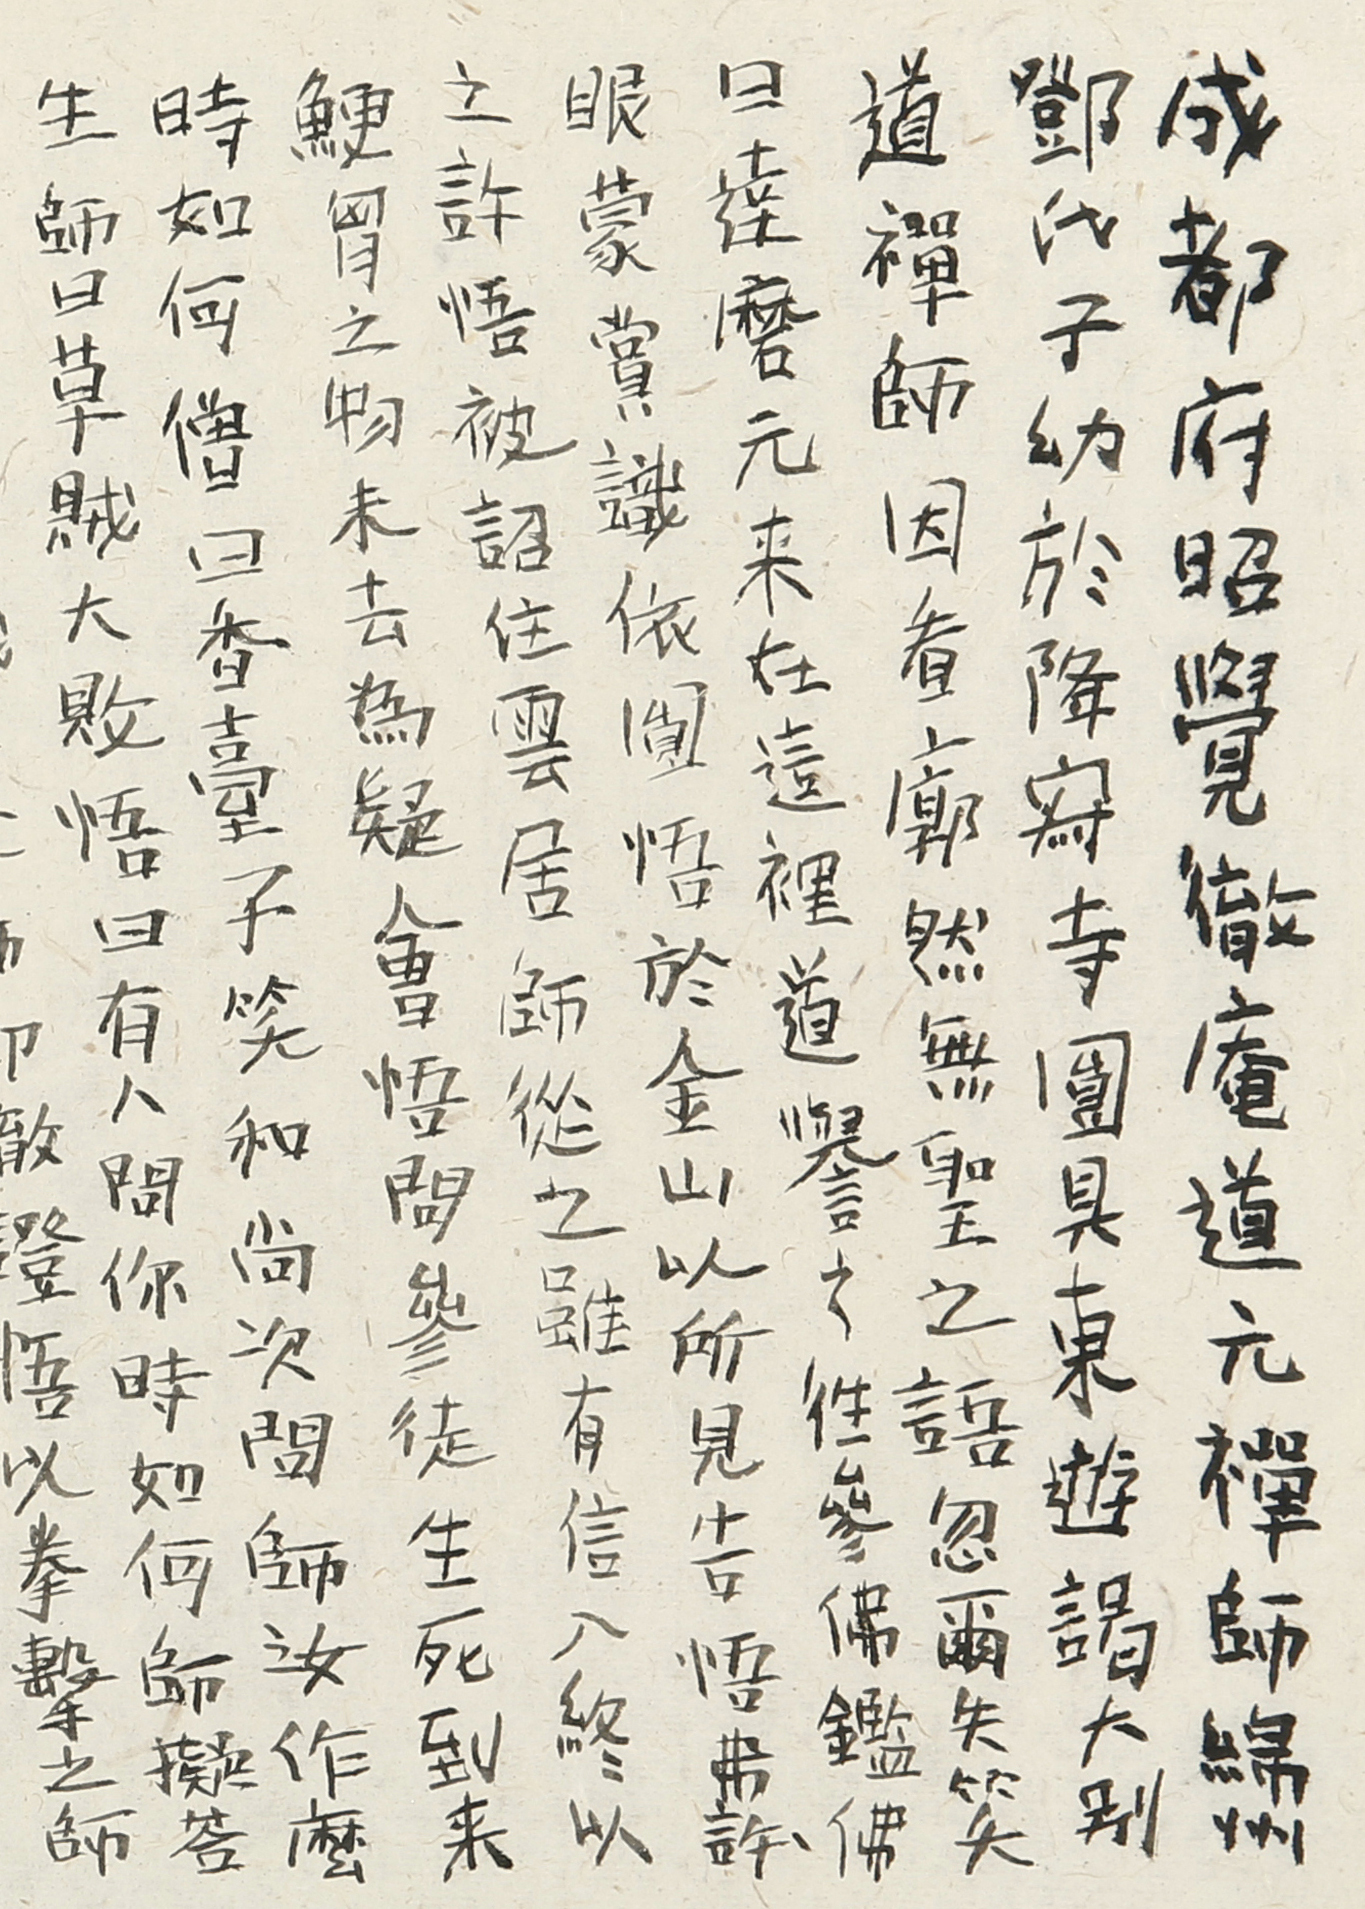 成都府昭覺徹庵道元禪師綿州
鄧氏子幼於降寂寺圓具東遊謁大別
道禪師因看廓然無聖之語忽爾失笑
曰達磨元来在這裡道譽之往參佛鑑佛
眼蒙賞識依圓悟於金山以所見告悟弗許
之許悟被詔住雲居師從之雖有信入終以
鯁胷之物未去為疑會悟問參徒生死到来
時如何僧曰香臺子笑和尚次問師汝作麼
生師曰草賊大敗悟曰有人問你時如何師擬荅
徹證悟以拳擊之師